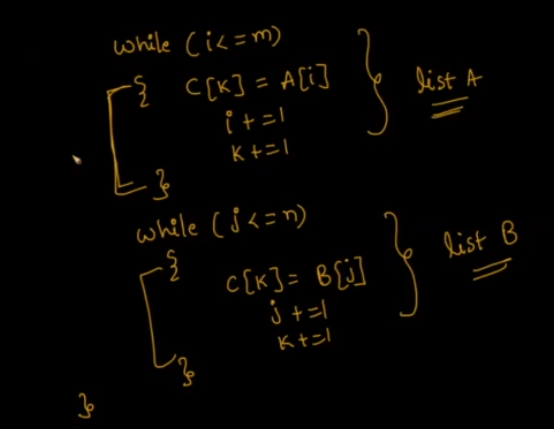 while (i<=m)
{ C[K] = A[i]
i+=1
k+=1
}
list A
while (j<=n)
{
C[K]= B[j]
j+=1
k+=1
}
list B
}